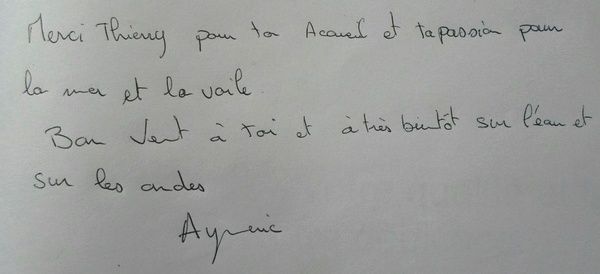 Merci Thierry pour ton Accueil et ta passion pour
la mer et la voile.
Bon Vent à toi et à très bientôt sur l'eau et
sur les ondes
Aymeric